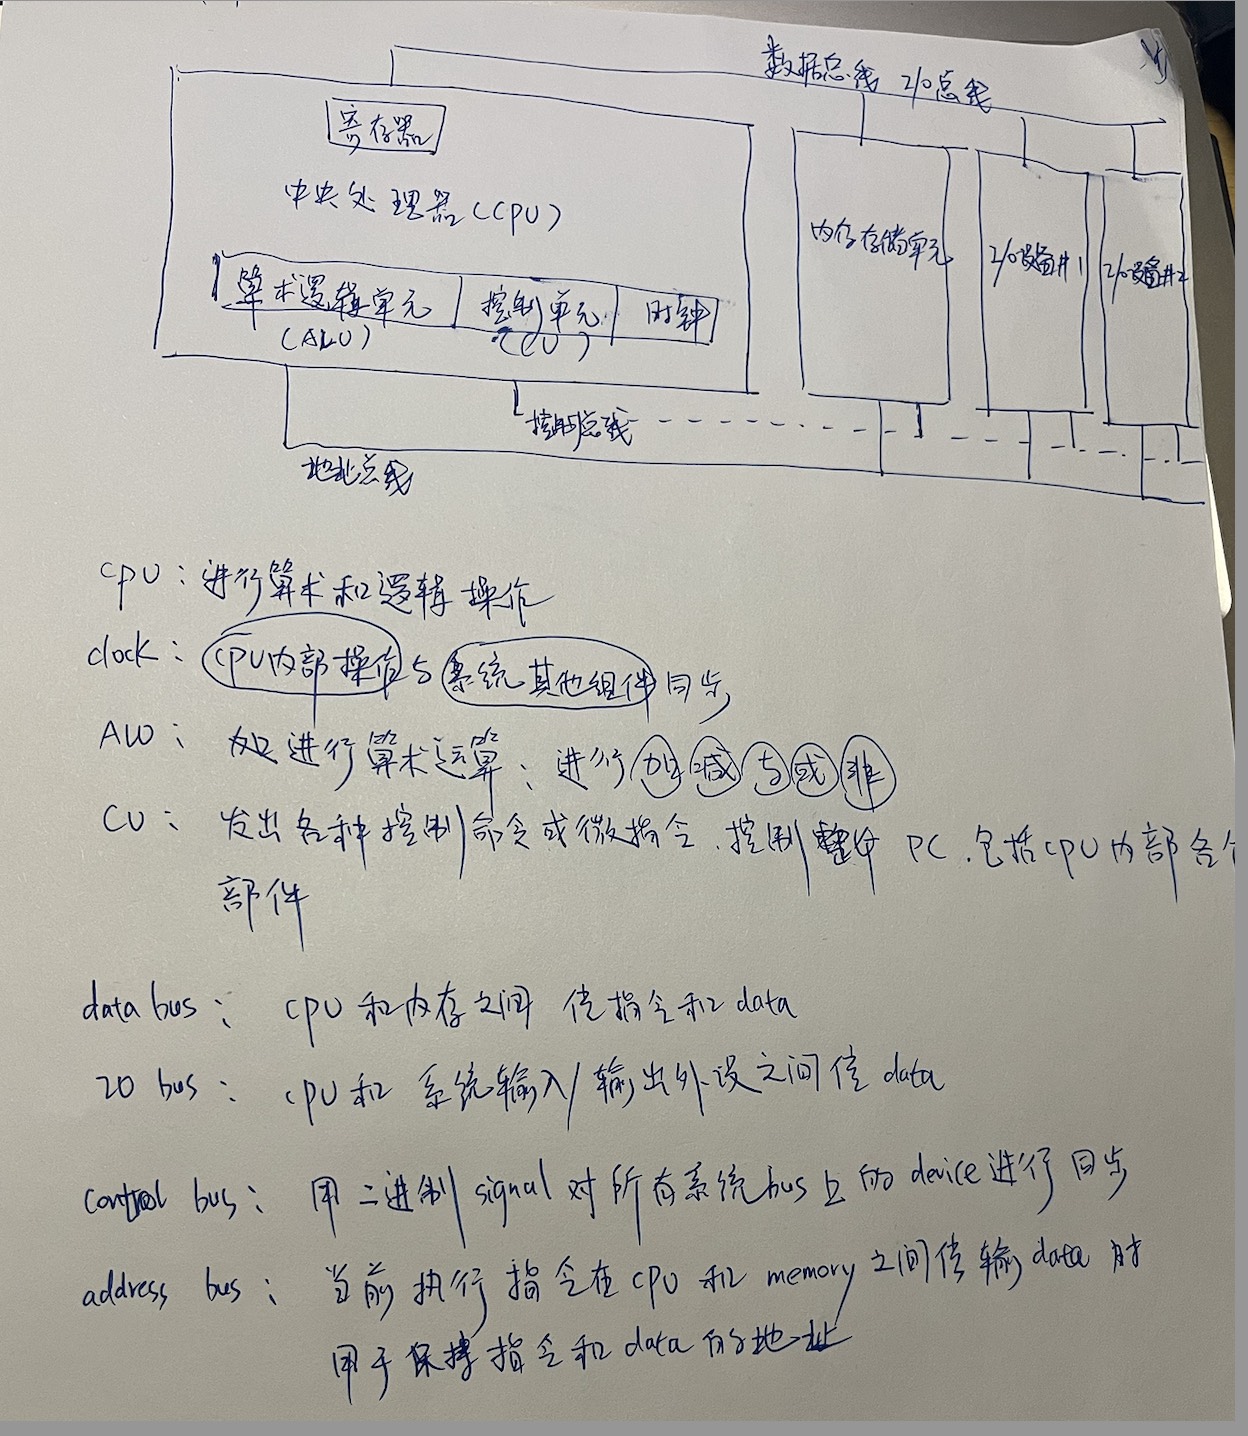 数据总线 I/O总线
寄存器
中央处理器(CPU)
内存存储单元
I/O设备#1
I/O设备#2
算术逻辑单元
(ALU)
控制单元
(CU)
时钟
控制总线
地址总线
CPU：进行算术和逻辑操作
clock：CPU内部操作与系统其他组件同步
ALU：进行算术运算：进行加减与或非
CU：发出各种控制命令或微指令.控制整个PC.包括CPU内部各个
部件
data bus：CPU和内存之间传指令和data
IO bus：CPU和系统输入/输出外设之间传data
control bus：用二进制signal对所有系统bus上的device进行同步
address bus：当前执行指令在CPU和memory之间传输data时
用于保持指令和data的地址